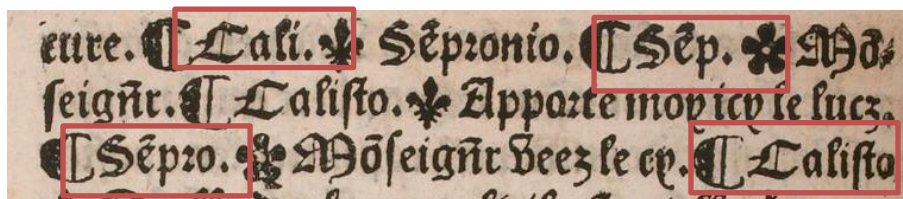 eure. ¶ Cali. ⚜ Sẽpronio. ¶ Sẽp. ✽ Mõ⸗
ſeigñr. ¶ Caliſto. ⚜ Apporte moy icy le lucz.
¶ Sẽpro. ✽ Mõſeigñr Veez le cy. ¶ Caliſto